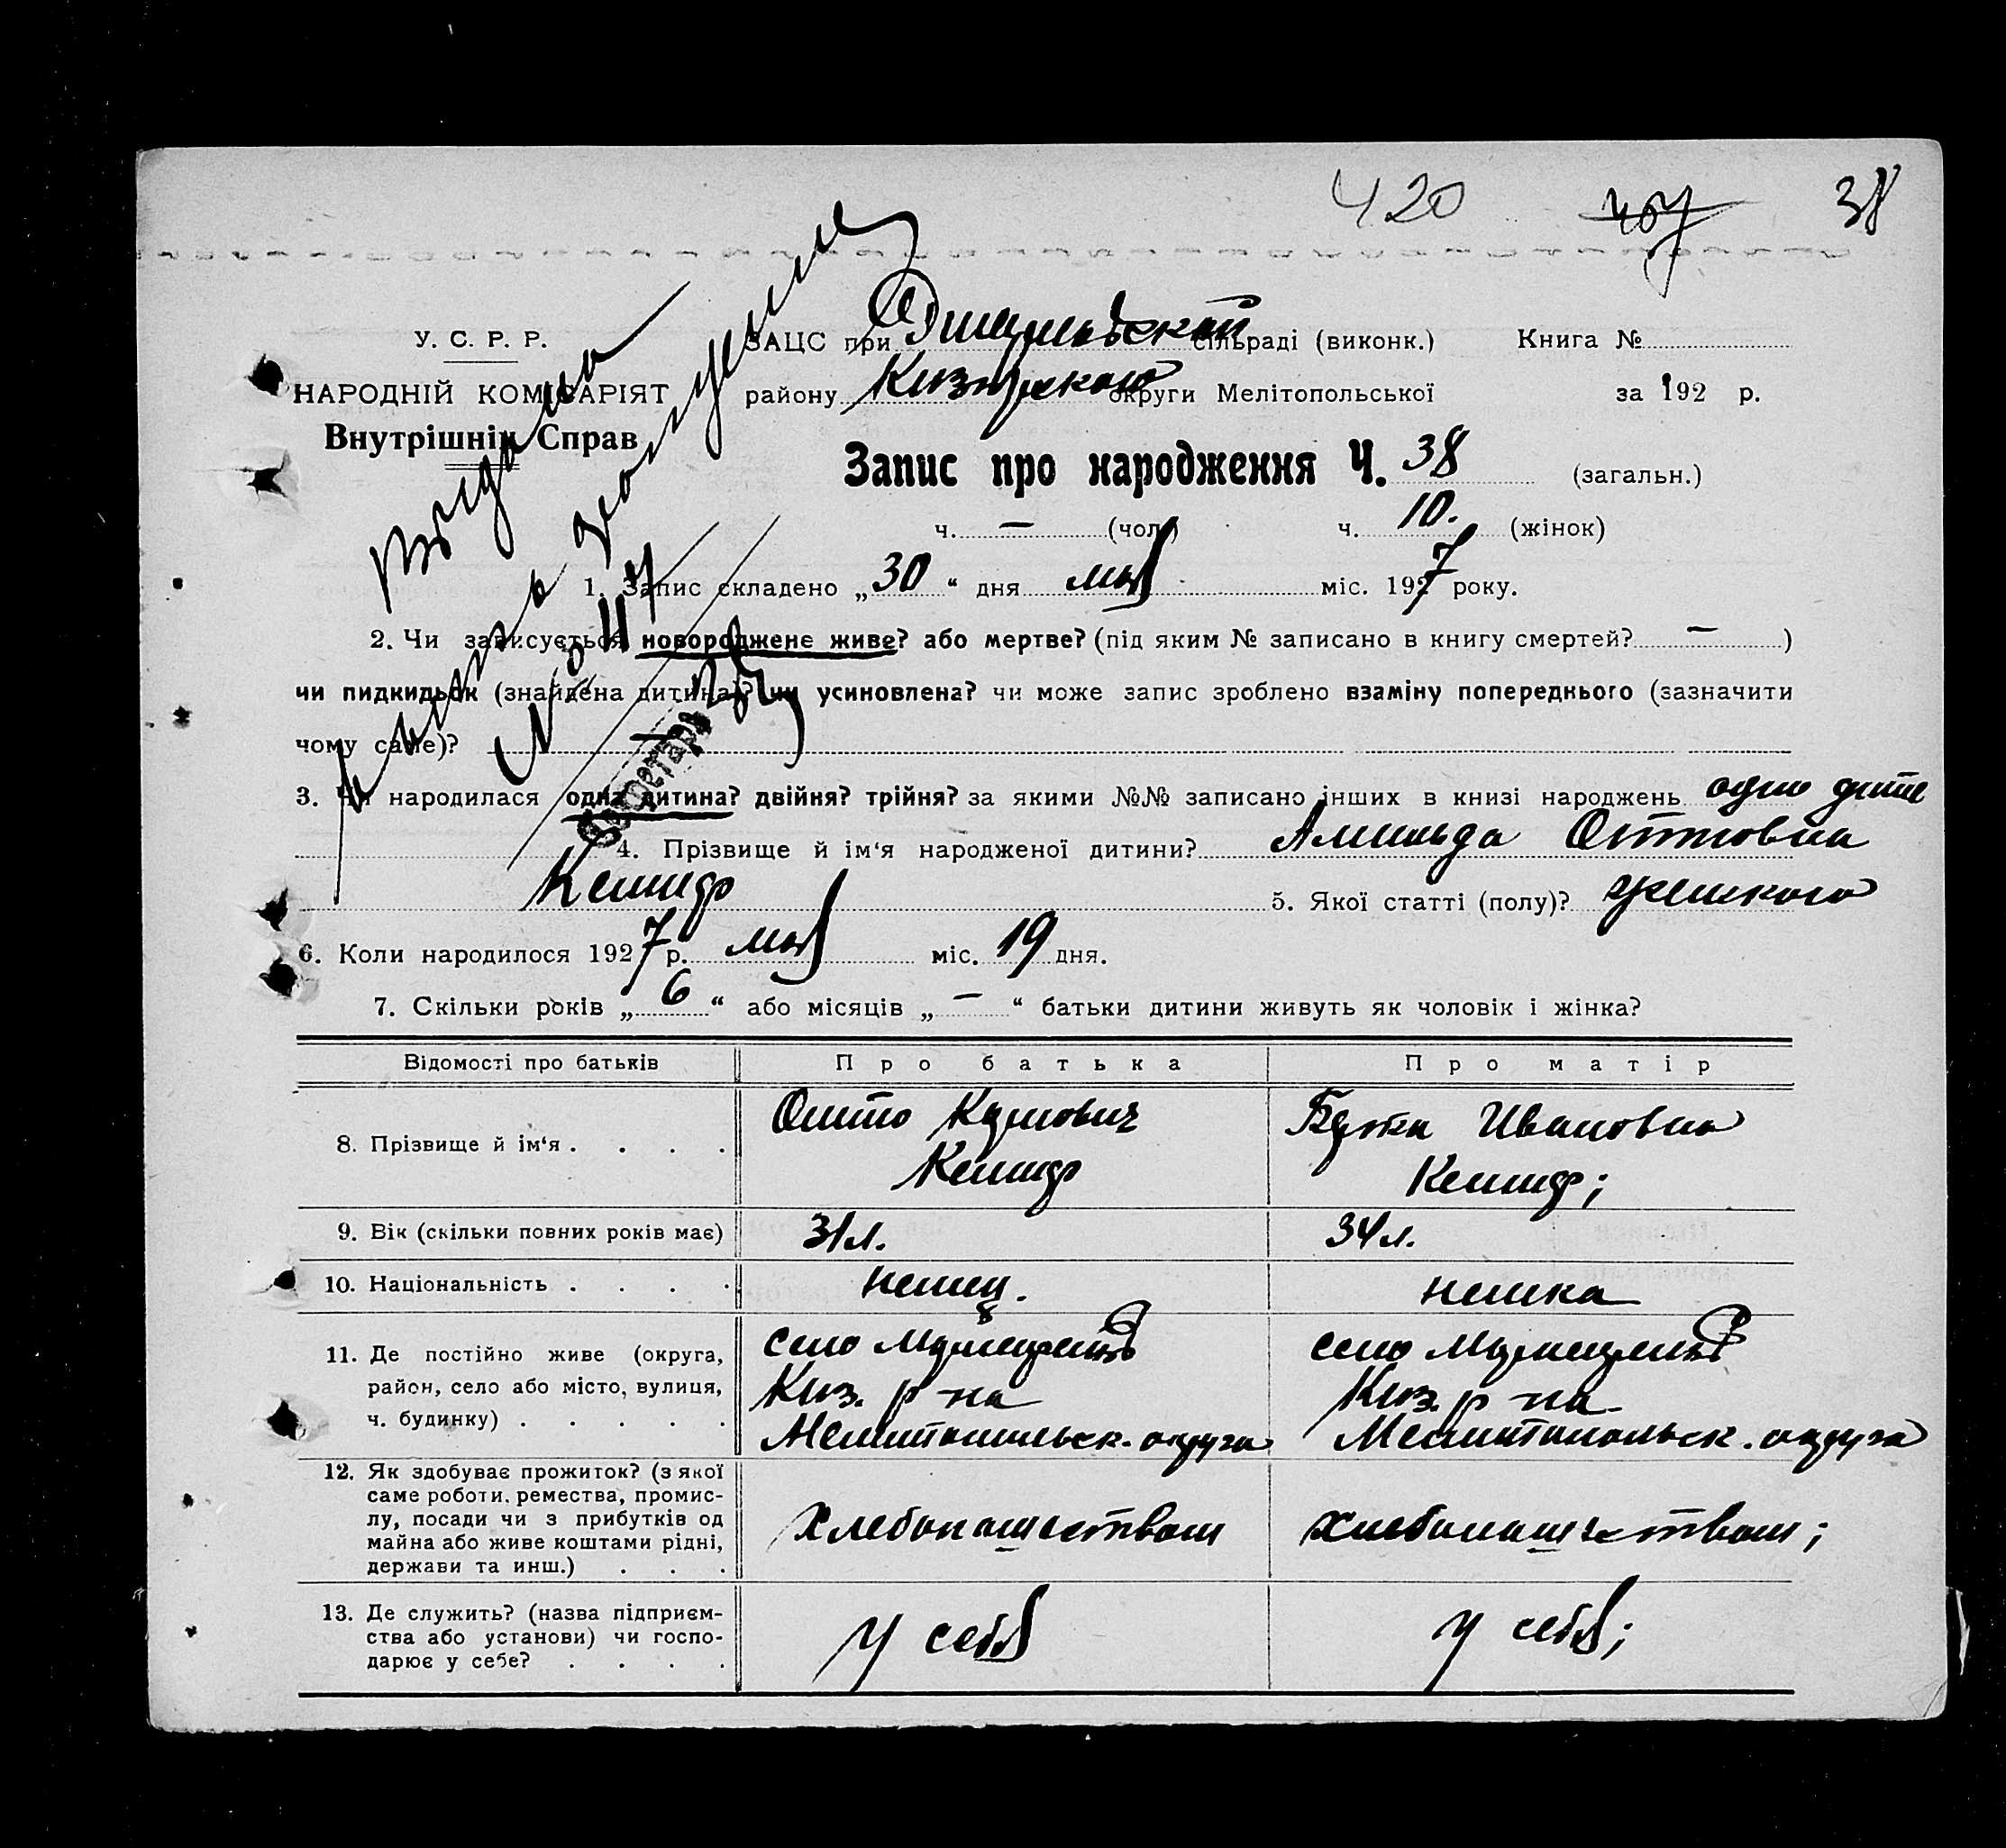 420 38
У. С. Р. Р.
ЗАЦС при сільраді (виконк.) Книга №
НАРОДНІЙ КОМІСАРІЯТ
району округи Мелітопольської за 192 р.
Внутрішніх Справ
Запис про народження Ч. 38 (загальн.)
ч. — (чол.) ч. 10. (жінок)
1. Запис складено „30“ дня мая міс. 1927 року.
2. Чи записується новороджене живе? або мертве? (під яким № записано в книгу смертей? — )
чи пидкидьок (знайдена дитина)? чи усиновлена? чи може запис зроблено взаміну попереднього (зазначити
чому саме)? —
Секретарь
3. Чи народилася одна дитина? двійня? трійня? за якими №№ записано інших в книзі народжень одно дитя
4. Прізвище й ім‘я народженої дитини? Амильда Оттовна
5. Якої статті (полу)? женского
6. Коли народилося 1927 р. мая міс. 19 дня.
7. Скільки років „6“ або місяців „—“ батьки дитини живуть як чоловік і жінка?
Відомості про батьків Про батька Про матір
8. Прізвище й ім‘я . . . . Отто Ивановна
9. Вік (скільки повних років має) 31 л. 34 л.
10. Національність . . . . немец. немка
11. Де постійно живе (округа, село село
район, село або місто, вулиця, Киз. р-на Киз. р-на
ч. будинку) . . . . . Мелитопольск. округа Мелитопольск. округа
12. Як здобуває прожиток? (з якої
саме роботи, ремества, промис-
лу, посади чи з прибутків од хлебопашеством хлебопашеством;
майна або живе коштами рідні,
держави та инш.) . . .
13. Де служить? (назва підприєм-
ства або установи) чи госпо- у себя у себя;
дарює у себе? . . . .